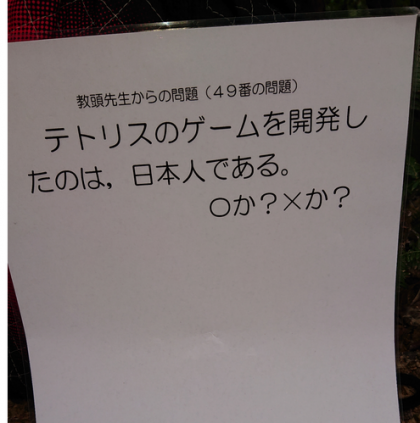 教頭先生からの問題（４９番の問題）
テトリスのゲームを開発し
たのは，日本人である。
○か？×か？